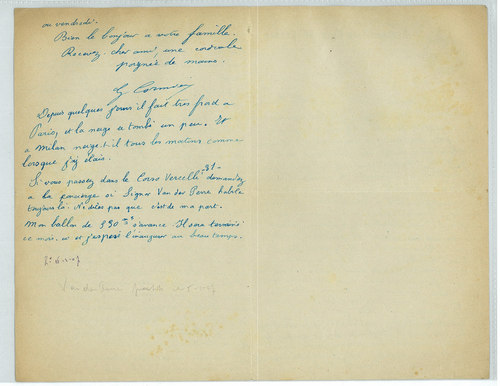 ou vendredi.
Bien le bonjour a votre famille.
Recevez, cher ami, une cordiale
poignée de mains.
G. Cormier
Depuis quelques jours il fait très froid a
Paris, et la neige a tombé un peu. Et
a Milan neige-t-il tous les matins comme
lorsque j'y étais.
Si vous passez dans le Corso Vercelli 31 demandez
a la concierge si Signor Van den Perre habite
toujours là. Ne dites pas que c'est de ma part.
Mon ballon de 330 m3 s'avance. Il sera terminé
ce mois-ci et j'espère l'inaugurer au beau temps.